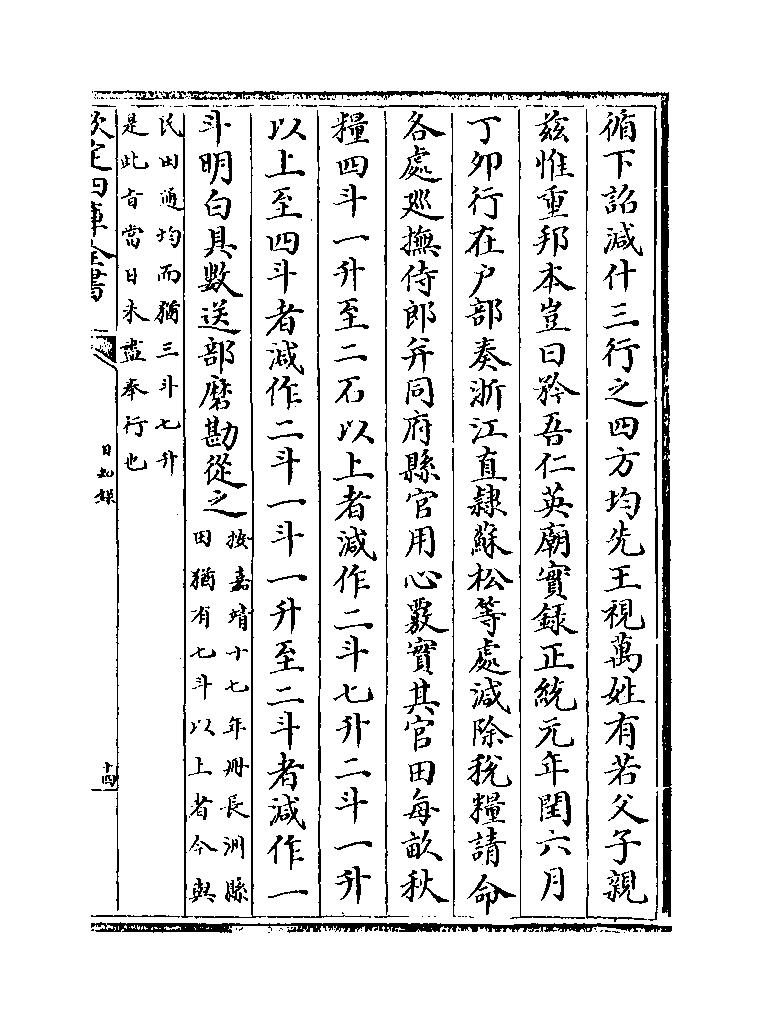 循下詔減什三行之四方均先王視萬姓有若父子親
兹惟重邦本豈曰矜吾仁英廟實録正統元年閏六月
丁卯行在户部奏浙江直隸蘇松等處減除税糧請命
各處廵撫侍郎并同府縣官用心覈實其官田每畝秋
糧四斗一升至二石以上者減作二斗七升二斗一升
以上至四斗者減作二斗一斗一升至二斗者減作一
斗明白具數送部磨勘從之
按嘉靖十七年册長洲縣
田猶有七斗以上者今與
民田通均而猶三斗七升
是此㫖當日未盡奉行也
欽定四庫全書
日知録
十四